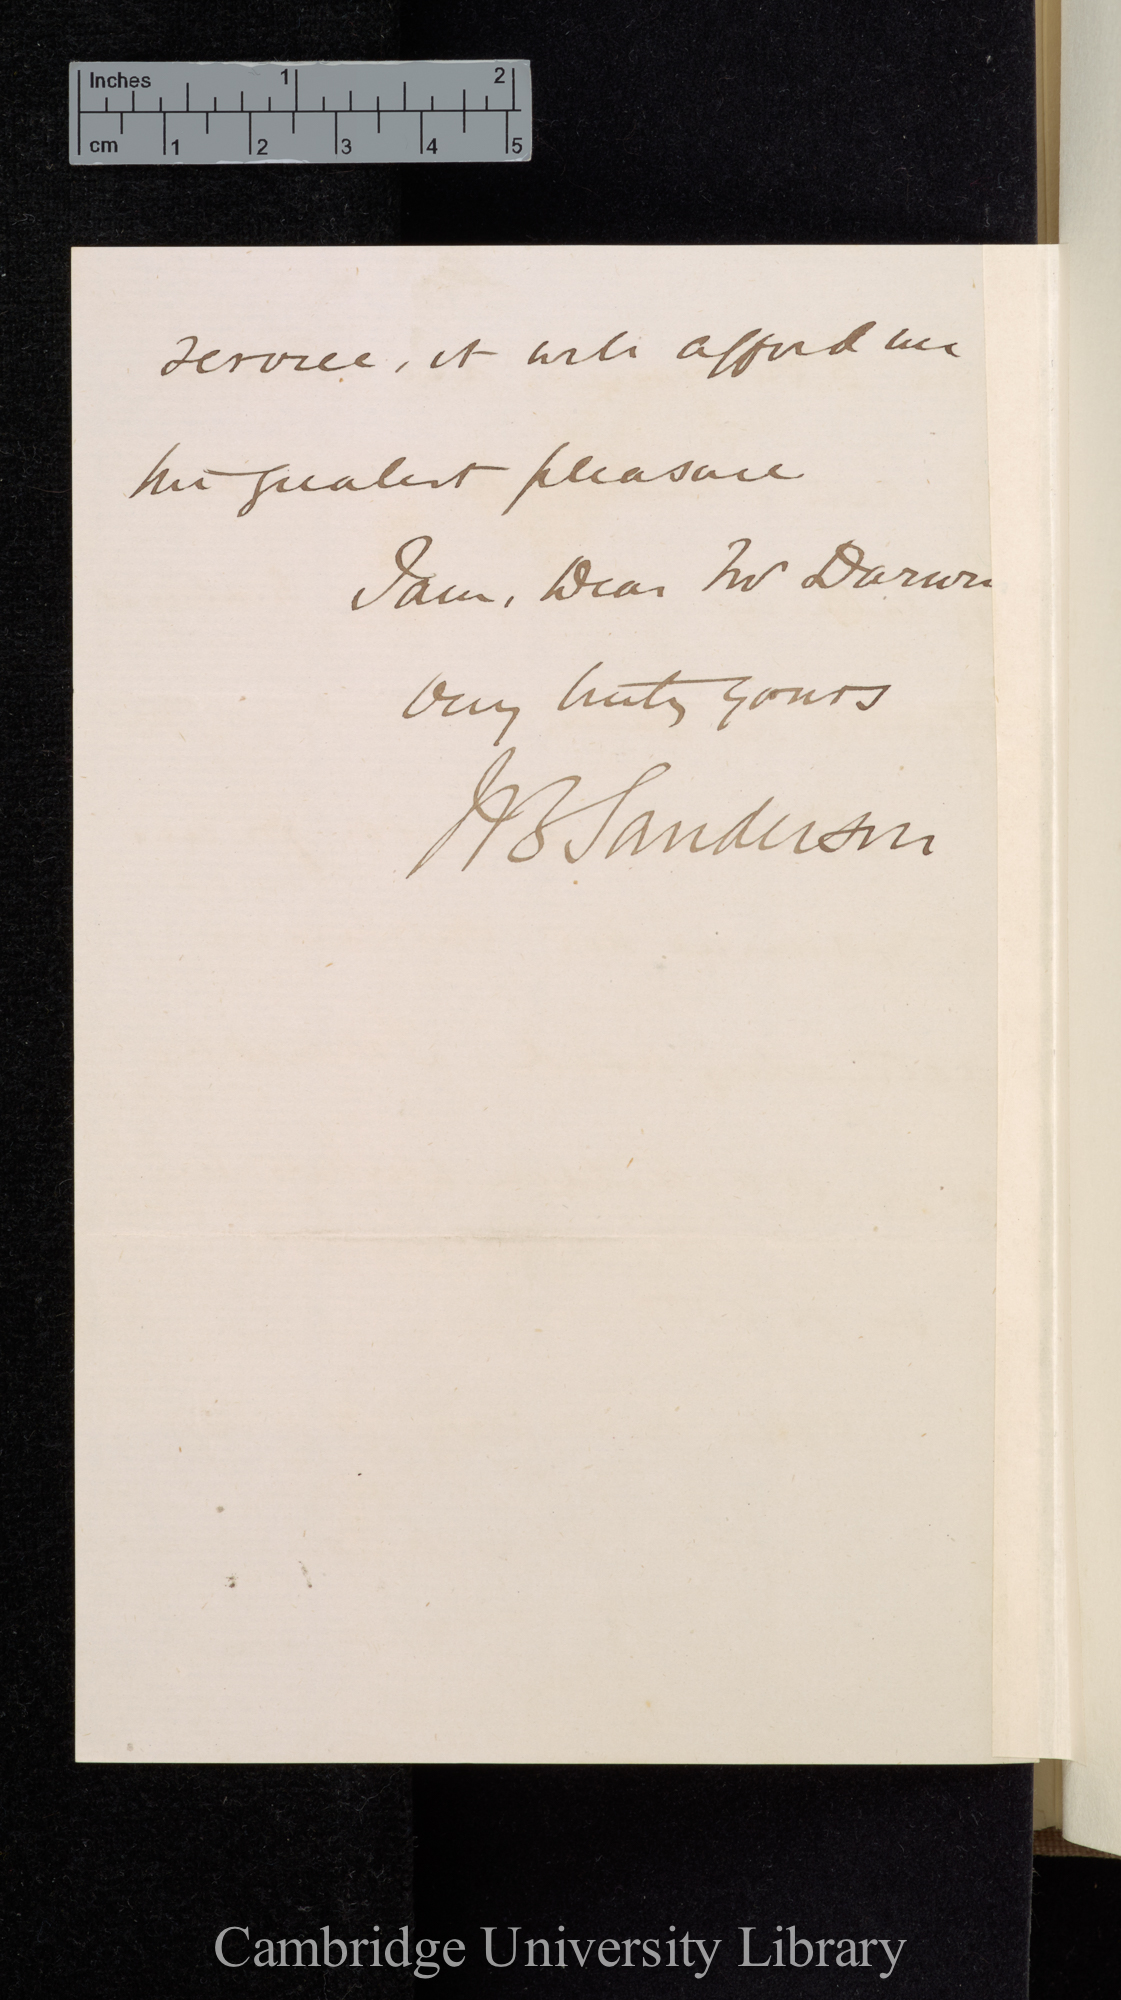 Inches 1 2
cm 1 2 3 4 5
service, it will afford me
the greatest pleasure
I am, Dear Mr Darwin
Very truly yours
JB Sanderson
Cambridge University Library